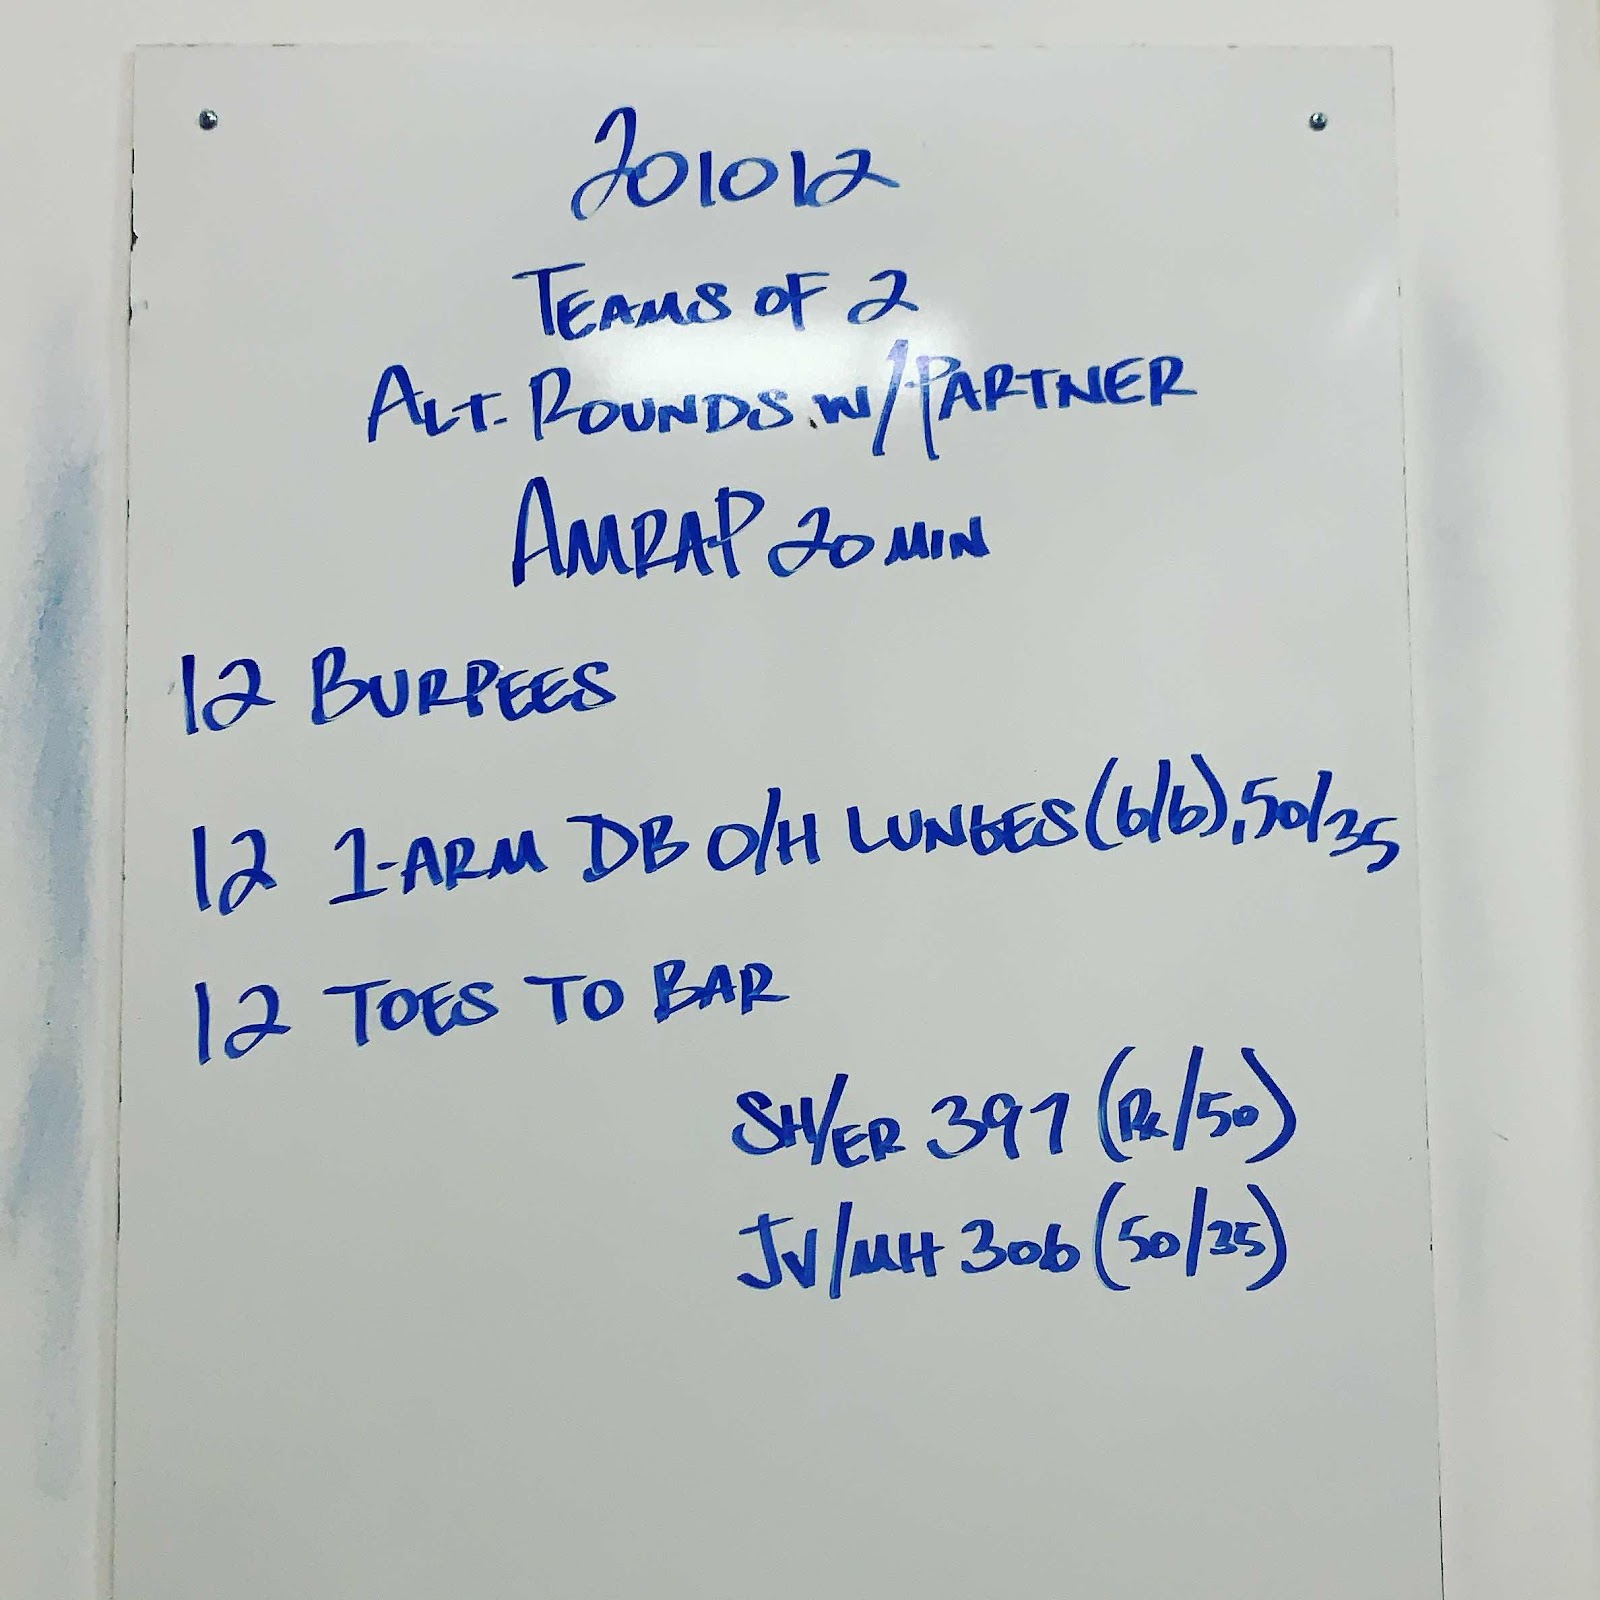 201012
TEAMS OF 2
ALT. ROUNDS W/PARTNER
AMRAP 20 MIN
12 BURPEES
12 1-ARM DB O/H LUNGES (6/6), 50/35
12 TOES TO BAR
SH/ER 397 (Rx/50)
JV/MH 306 (50/35)